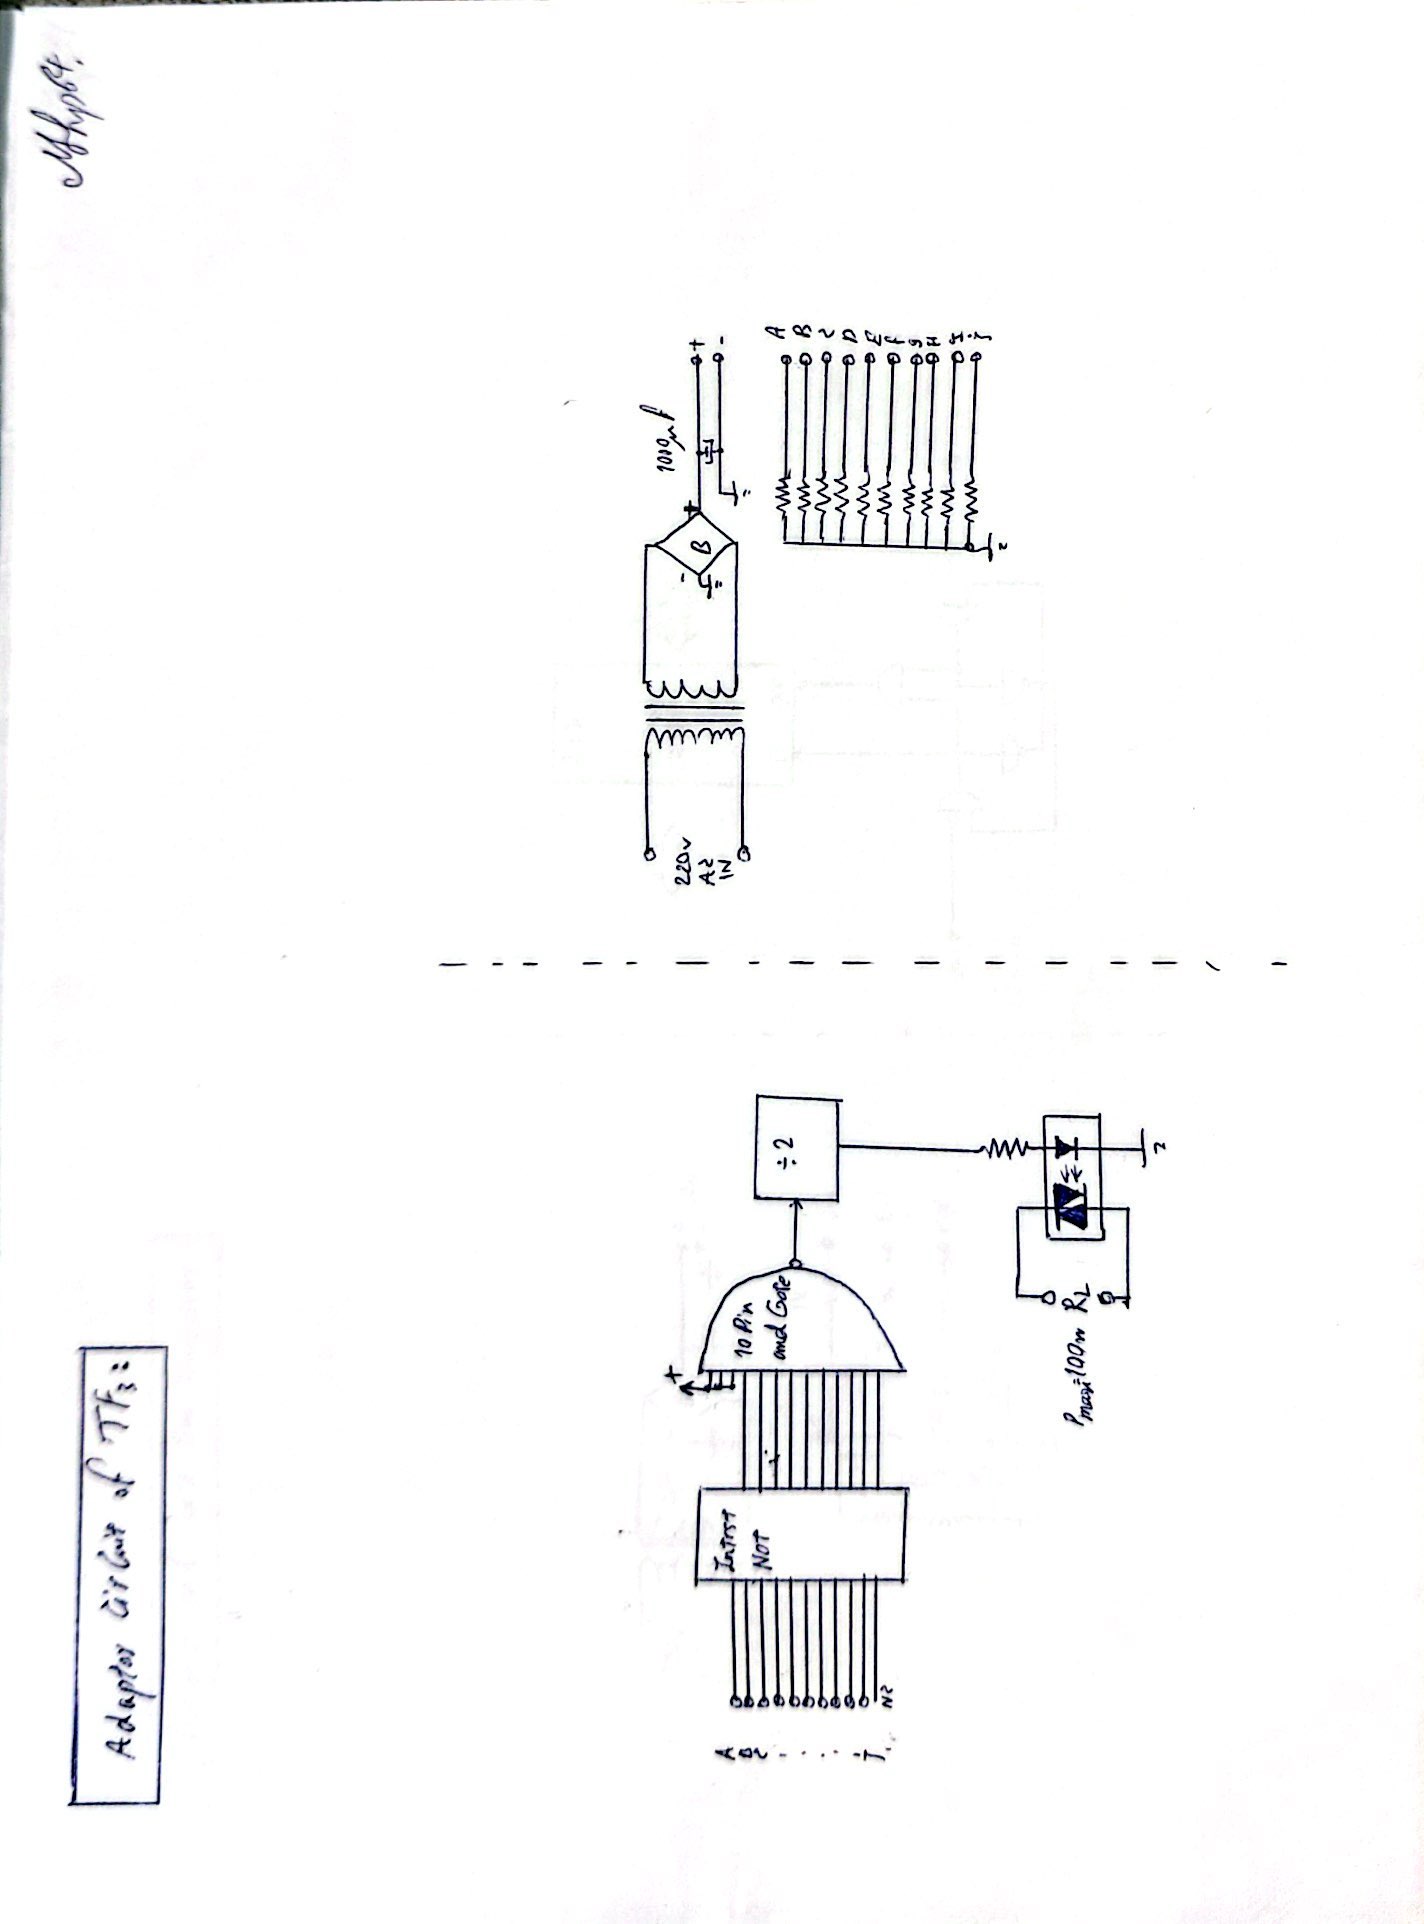 Adaptor Circuit of TF3:
A
B
C
J
NC
Intrst
NOT
+
10 Pin
and Gate
÷2
Pmax=100w RL
220v
AC
IN
-
B
+
1000μf
+
-
A
B
C
D
E
F
g
H
I
j